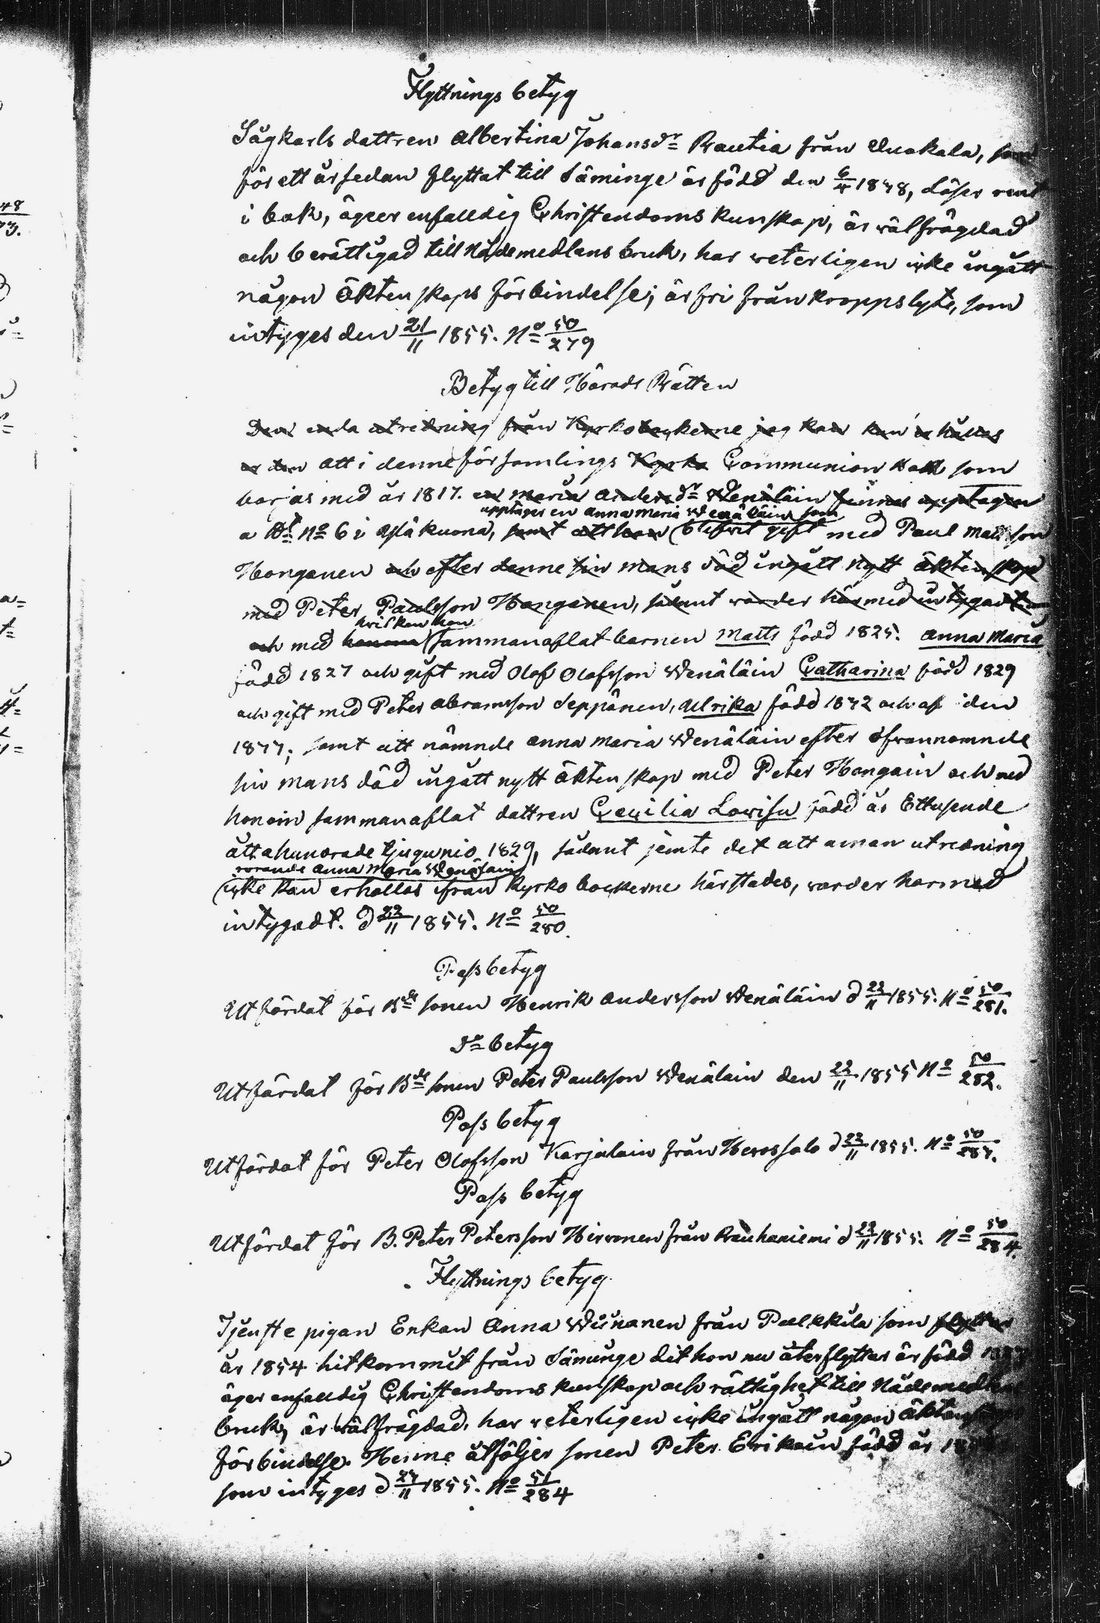 Flyttnings betyg
Sågkarls dottren Albertina Johansdr Rautia från Kuokala, som
för ett år sedan flyttat till Säminge är född den 6/4 1848, Läser rent
i bok, äger enfalldig Christendoms kunskap, är välfrägdad
och berättigad till Nådemedlens bruk, har veterligen icke ingått
någon Äktenskaps förbindelse; är fri från kroppslyte, som
intyges den 21/11 1855. No 50/279
Betyg till Härads Rätten
Den enda utredning från Kyrkobøckerne jag kan kan erhållas
är den att i denne församlings Kyrko Communion Bok som
börjas med år 1817. en Maria Andersdr Wenäläin finnes upptagen
upptages en Anna Maria Wenäläin, som
a No 6 i samt att hon blifvit gift med Paul Matsson
Honganen och efter denne sin mans död ingått nytt äktenskap
med Peter Paulsson Honganen, sådant warder härmed intygadt
hvilken hon
och med honom sammanaflat barnen Matts född 1825. Anna Maria
född 1827 och gift med Olof Olofsson Wenäläin Catharina född 1829
och gift med Peter Abramsson Seppänen, Ulrika född 1842 och af den
1847; samt att nämnde Anna Maria Wenäläin efter ofvannämnde
sin mans död ingått nytt Äktenskap med Peter Hongain och med
honom sammanaflat dottren Cecilia Lovisa född år Ettusende
åttahundrade tjugunio 1829, sådant jemte det att annan utredning
rörande Anna Maria Wenäläin
icke kan erhållas ifrån Kyrko böckerne härstädes, warder härmed
intygadt. d 22/11 1855. No 50/280.
Passbetyg
Utfärdat för Bde sonen Henrik Andersson Wenäläin d 22/11 1855. No 50/281.
Do betyg
Utfärdat för Bde sonen Peter Paulsson Wenäläin den 22/11 1855 No 50/282.
Pass betyg
Utfärdat för Peter Olofsson Karjalain från d 22/11 1855. No 50/
Pass betyg
Utfärdat för B. Peter Petersson Hirvonen från Rauhaniemi d 22/11 1855. No 50/284.
Flyttnings betyg
Tjenste pigan Enkan Anna från som flyttar
år 1854 hitkommit från Säminge dit hon nu återflyttar är född
äger enfalldig Christendoms kunskap och rättighet till Nådemedlens
bruk, är välfrägdad, har veterligen icke ingått någon äktenskaps
förbindelse. Henne åtföljer sonen Peter Erikain född år
som intyges d 27/11 1855. No 51/284